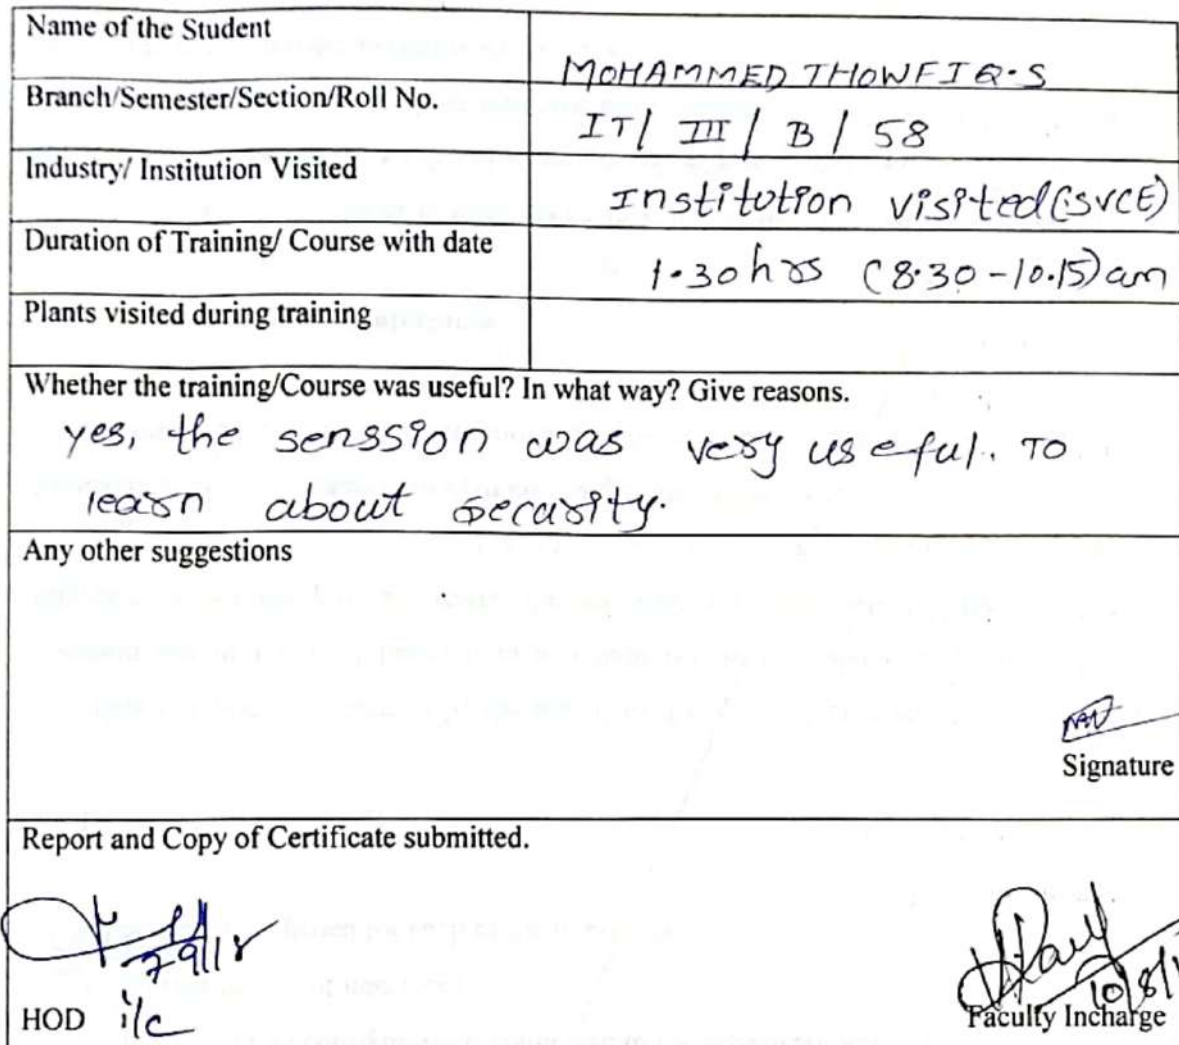 Name of the Student
MOHAMMED THOWFIQ.S
Branch/Semester/Section/Roll No.
IT/ III / B / 58
Industry/ Institution Visited
Institution visited (SVCE)
Duration of Training/ Course with date
1.30 hrs (8.30-10.15) am
Plants visited during training
Whether the training/Course was useful? In what way? Give reasons.
yes, the senssion was very useful. To
learn about security.
Any other suggestions
Signature
Report and Copy of Certificate submitted.
HOD i/c
10/8/1
Faculty Incharge